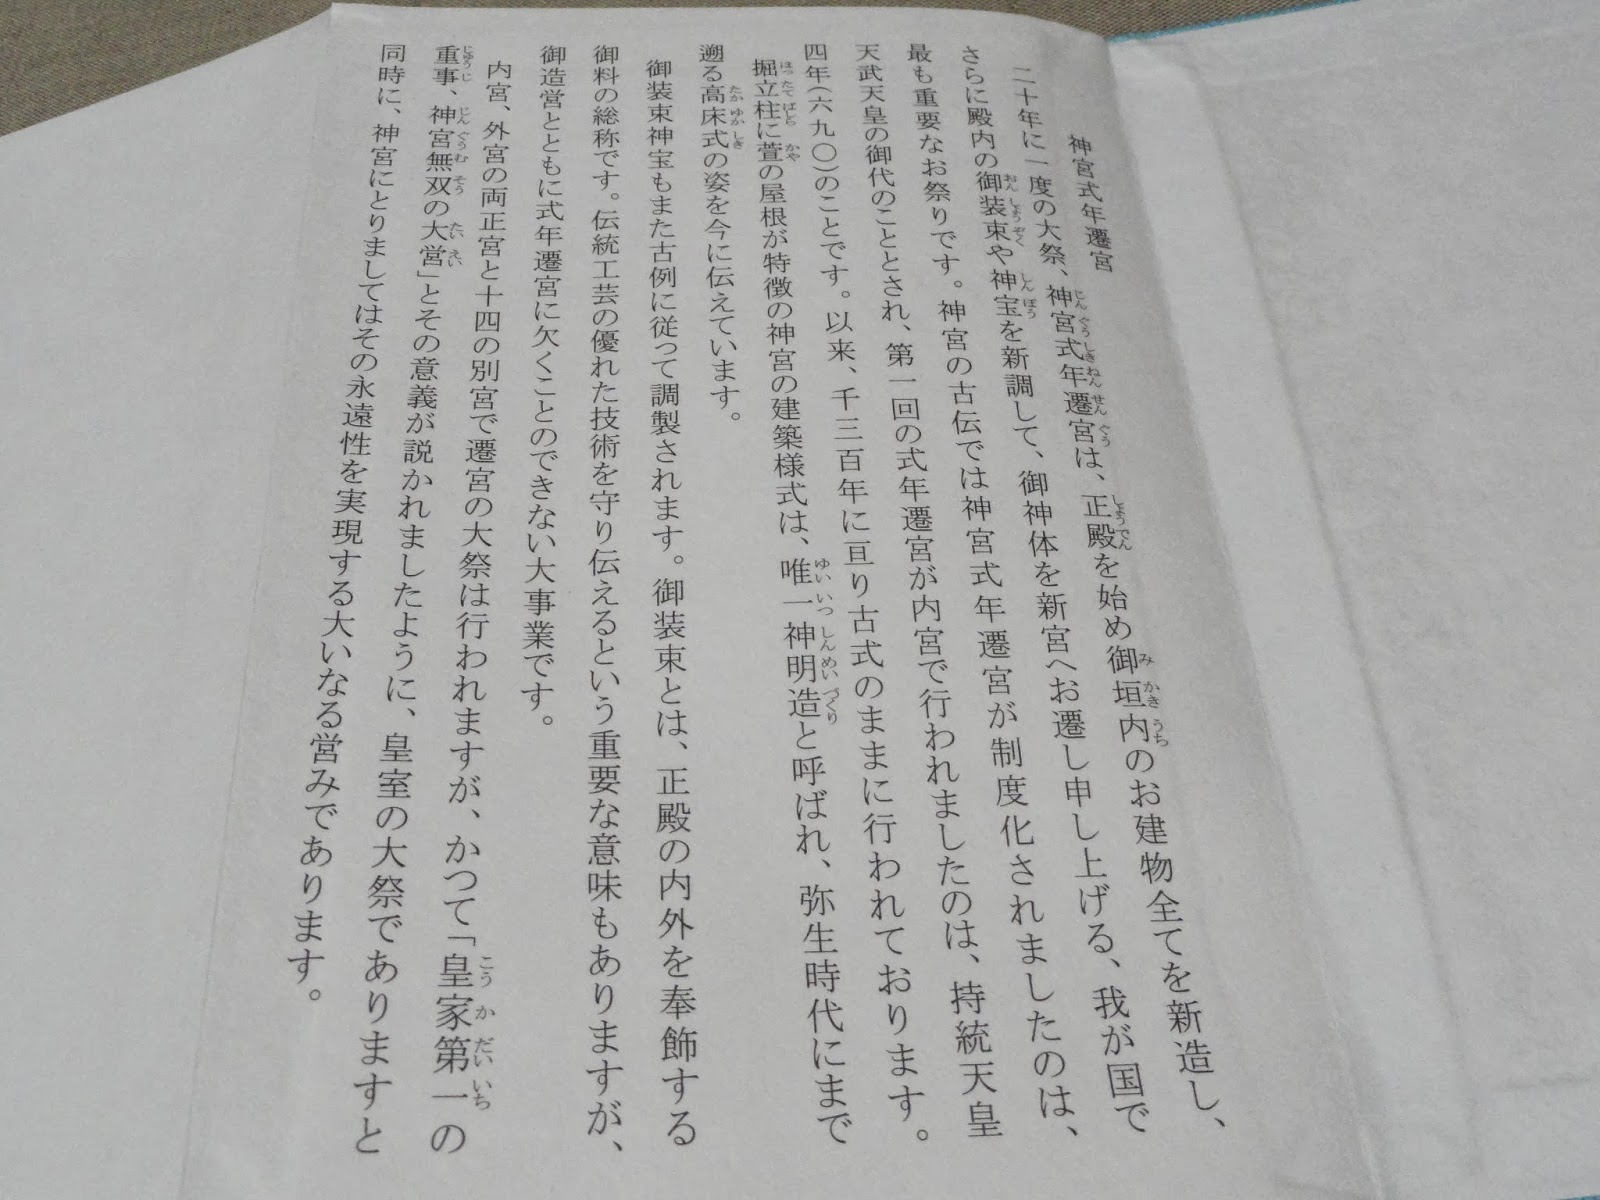 神宮式年遷宮
二十年に一度の大祭、神宮式年遷宮は、正殿を始め御垣内のお建物全てを新造し、
さらに殿内の御装束や神宝を新調して、御神体を新宮へお遷し申し上げる、我が国で
最も重要なお祭りです。神宮の古伝では神宮式年遷宮が制度化されましたのは、
天武天皇の御代のこととされ、第一回の式年遷宮が内宮で行われましたのは、持統天皇
四年（六九〇）のことです。以来、千三百年に亘り古式のままに行われております。
掘立柱に萱の屋根が特徴の神宮の建築様式は、唯一神明造と呼ばれ、弥生時代にまで
遡る高床式の姿を今に伝えています。
御装束神宝もまた古例に従って調製されます。御装束とは、正殿の内外を奉飾する
御料の総称です。伝統工芸の優れた技術を守り伝えるという重要な意味もありますが、
御造営とともに式年遷宮に欠くことのできない大事業です。
内宮、外宮の両正宮と十四の別宮で遷宮の大祭は行われますが、かつて「皇家第一の
重事、神宮無双の大営」とその意義が説かれましたように、皇室の大祭でありますと
同時に、神宮にとりましてはその永遠性を実現する大いなる営みであります。